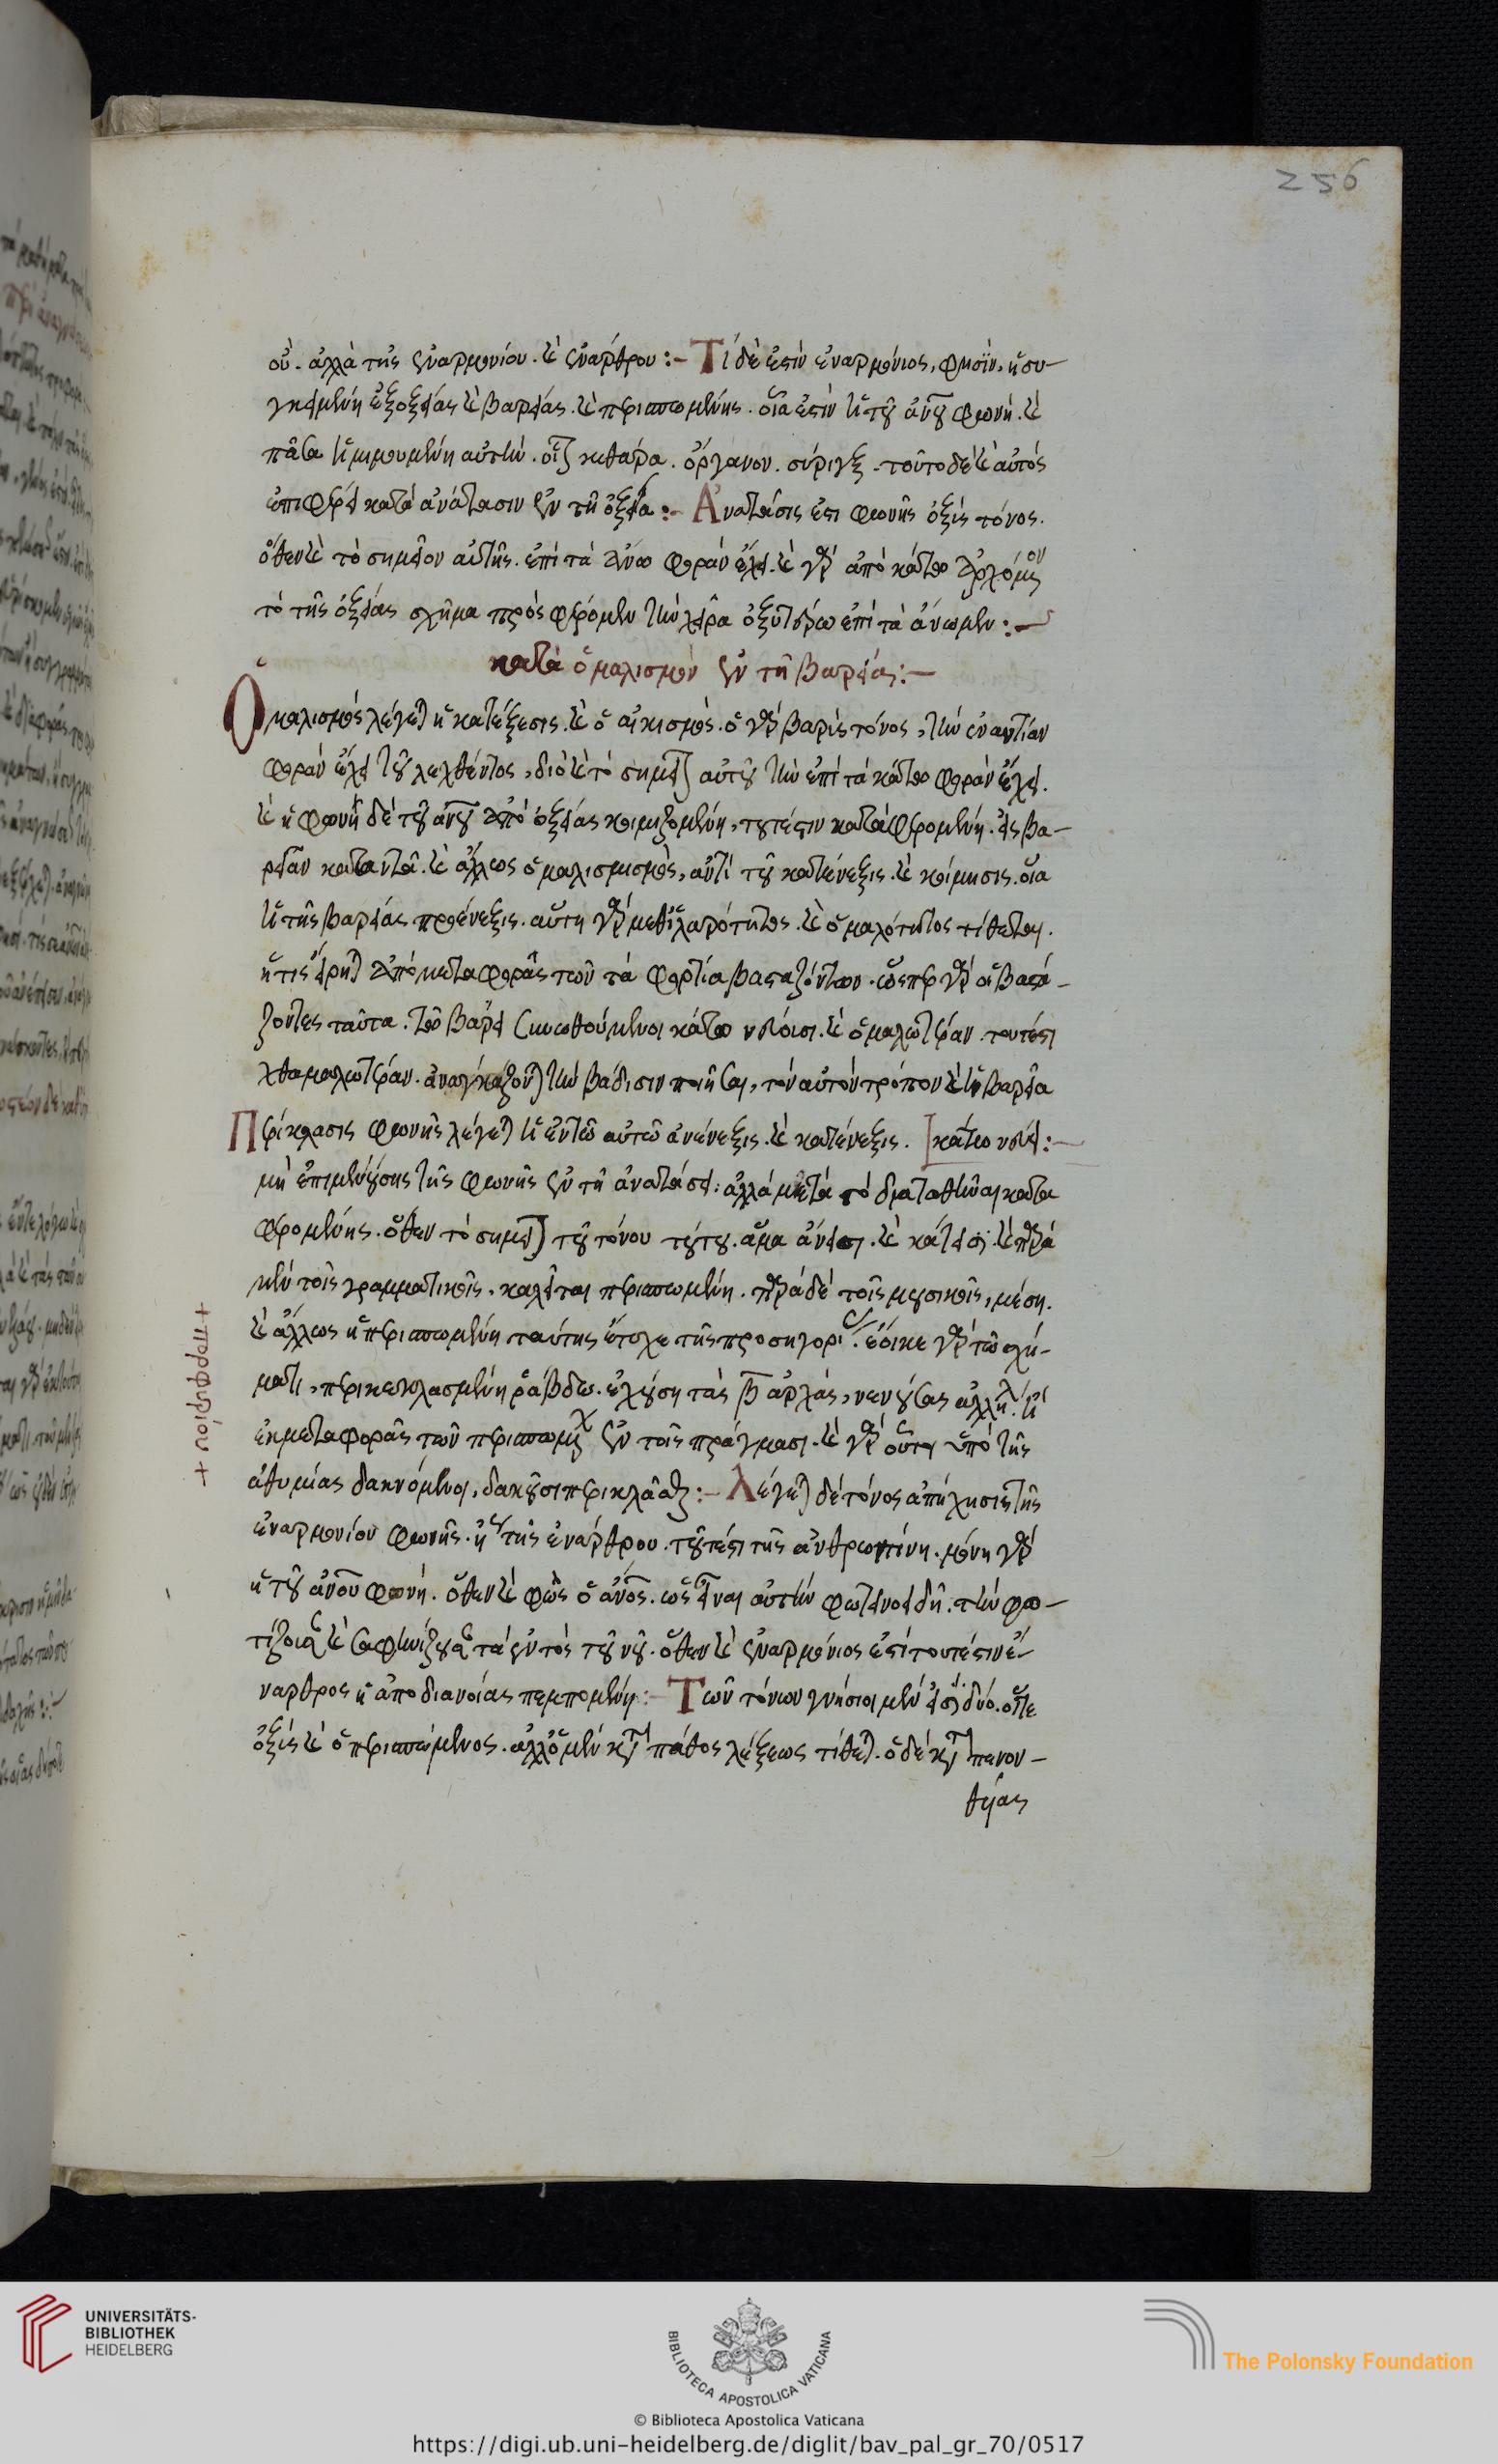 256
οὐ. ἀλλὰ τῆς ἐναρμονίου. καὶ ἐνάρθρου :- Τί δὲ ἐστὶν ἐναρμόνιος, φησὶν, ἡ συ-
γκειμένη ἐξ ὀξείας καὶ βαρείας. καὶ περισπωμένης. οἷα ἐστὶν ἡ τοῦ ἀνου φωνή. καὶ
πᾶσα ἡ μιμουμένη αὐτήν. οἷον κιθάρα. ὄργανον. σύριγξ. τοῦτο δὲ καὶ αὐτὸς
ἐπιφέρει κατὰ ἀνάτασιν ἐν τῇ ὀξεία :- Ἀνατάσις ἐστι φωνῆς ὀξὶς τόνος.
ὅθεν καὶ τὸ σημεῖον αὐτῆς. ἐπὶ τὰ ἄνω φορὰν ἔχει. καὶ γὰρ ἀπὸ κάτω ἀρχόμενον
τὸ τῆς ὀξείας σχῆμα πρὸς φέρομεν τὴν χεῖρα ὀξυτέρω ἐπὶ τὰ ἄνωμεν :-
κατὰ ὁμαλισμὸν ἐν τῇ βαρείας :-
Ὁμαλισμὸς λέγεται ἡ κατέξεσις. καὶ ὁ αἰκισμὸς. ὁ γὰρ βαρὶς τόνος, τὴν ἐναντίαν
φορὰν ἔχει τοῦ λεχθέντος, διὸ καὶ τὸ σημεῖον αὐτοῦ τὴν ἐπὶ τὰ κάτω φορὰν ἔχει.
καὶ ἡ φωνὴ δὲ τοῦ ἀνου ἀπὸ ὀξείας κοιμιζομένη, τουτέστιν καταφερομένη. εἰς βα-
ρεῖαν καταντᾶ. καὶ ἄλλως ὁμαλισμισμὸς, ἀντὶ τοῦ κατένεξις. καὶ κοίμησις. οἷα
ἡ τῆς βαρείας προένεξις. αὕτη γὰρ μεθ ἱλαρότητος. καὶ ὁμαλότητος τίθεται.
ἥτις εἴρηται ἀπὸ μεταφορᾶς τῶν τὰ φορτία βασταζόντων. ὥσπερ γὰρ οἱ βαστά-
ζοντες ταῦτα. τῶ βάρει συνωθούμενοι κάτω νεύουσι. καὶ ὁμαλωτέραν. τουτέστι
χθαμαλωτέραν. ἀναγκάζονται τὴν βάδισιν ποιῆσαι, τὸν αὐτὸν τρόπον καὶ ἡ βαρεῖα
Περίκλασις φωνῆς λέγεται ἡ ἐν τῶ αὐτῶ ἀνένεξις. καὶ κατένεξις. [κάτω νεύει :-
μὴ ἐπιμενούσης τῆς φωνῆς ἐν τῇ ἀνατάσει: ἀλλὰ μετὰ τὸ διαταθῆναι κατα
φερομένης. ὅθεν τὸ σημεῖον τοῦ τόνου τούτου. ἅμα ἄνεισι. καὶ κάτεισι. καὶ παρὰ
μὲν τοῖς γραμματικοῖς. καλεῖται περισπωμένη. παρὰ δὲ τοῖς μουσικοῖς, μέση.
καὶ ἄλλως ἡ περισπωμένη ταύτης ἔτυχε τῆς προσηγορίας. ἔοικε γὰρ τῶ σχή-
ματι, περικεκλασμένη ῥάβδω. ἐχούση τὰς β ἀρχὰς, νενούσας ἀλλήλ. ἢ
ἐκ μεταφορᾶς τῶν περισπωμένων ἐν τοῖς πράγμασι. καὶ γὰρ οὗτοι ὑπὸ τῆς
ἀθυμίας δακνόμενοι, δοκοῦσι περικλᾶσθαι :- Λέγεται δὲ τόνος ἀπήχησις τῆς
ἐναρμονίου φωνῆς. ἢ τῆς ἐνάρθρου. τουτέστι τῆς ἀνθρωπίνη. μόνη γὰρ
ἡ τοῦ ἀνου φωνή. ὅθεν καὶ φῶς ὁ ἀνος. ὡς εἶναι αὐτὴν φωτεινοειδῆ. τὴν φω-
τίζουσαν καὶ σαφηνίζουσαν τὰ ἐντὸς τοῦ νοῦ. ὅθεν καὶ ἐναρμόνιος ἐστὶ τουτέστιν ἐ-
ναρθρος ἡ ἀπο διανοίας πεμπομένη :- Τῶν τόνων γνήσιοι μὲν εἰσὶ δύο. ὅτε
ὀξὶς καὶ ὁ περισπώμενος. ἀλλ ὁ μὲν κατὰ πάθος λέξεως τίθεται. ὁ δὲ κατὰ πενον-
θήας
+ πορφυρίου +
UNIVERSITÄTS-
BIBLIOTHEK
HEIDELBERG
BIBLIOTECA APOSTOLICA VATICANA
© Biblioteca Apostolica Vaticana
The Polonsky Foundation
https://digi.ub.uni-heidelberg.de/diglit/bav_pal_gr_70/0517